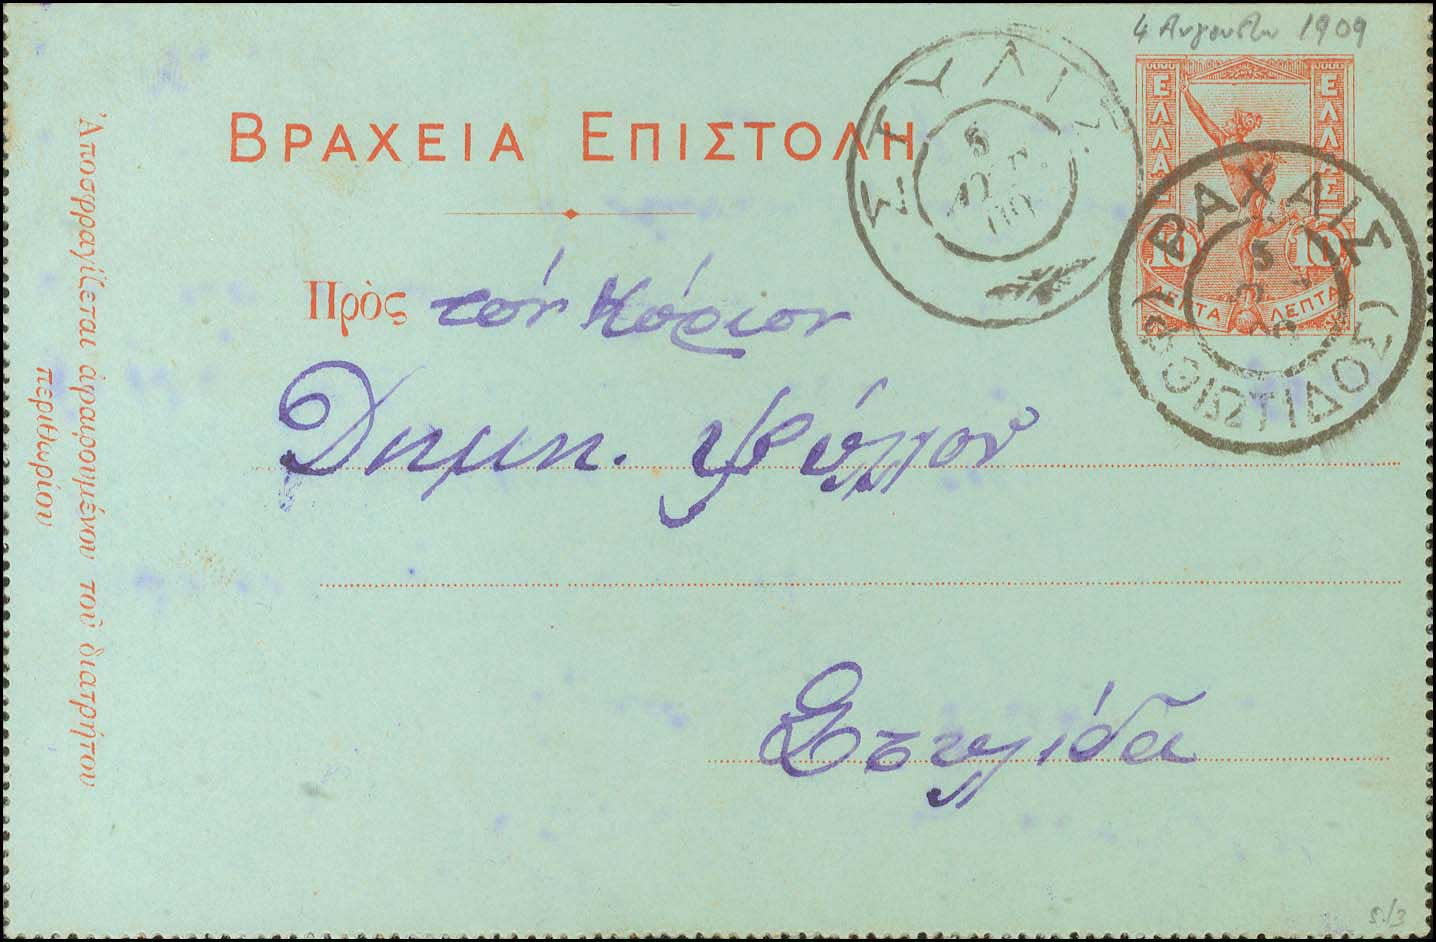 4 Αυγούστου 1909
ΒΡΑΧΕΙΑ ΕΠΙΣΤΟΛΗ
ΣΤΥΛΙΣ
5
ΑΥΓ.
09
ΕΛΛΑΣ
ΕΛΛΑΣ
10
10
ΛΕΠΤΑ
ΛΕΠΤΑ
ΡΑΧΑΙΣ
5
(ΦΘΙΩΤΙΔΟΣ)
Πρὸς τόν Κύριον
Δημη. Ψύλλον
Στυλίδα
Ἀποσφραγίζεται ἀφαιρουμένου τοῦ διατρήτου
περιθωρίου